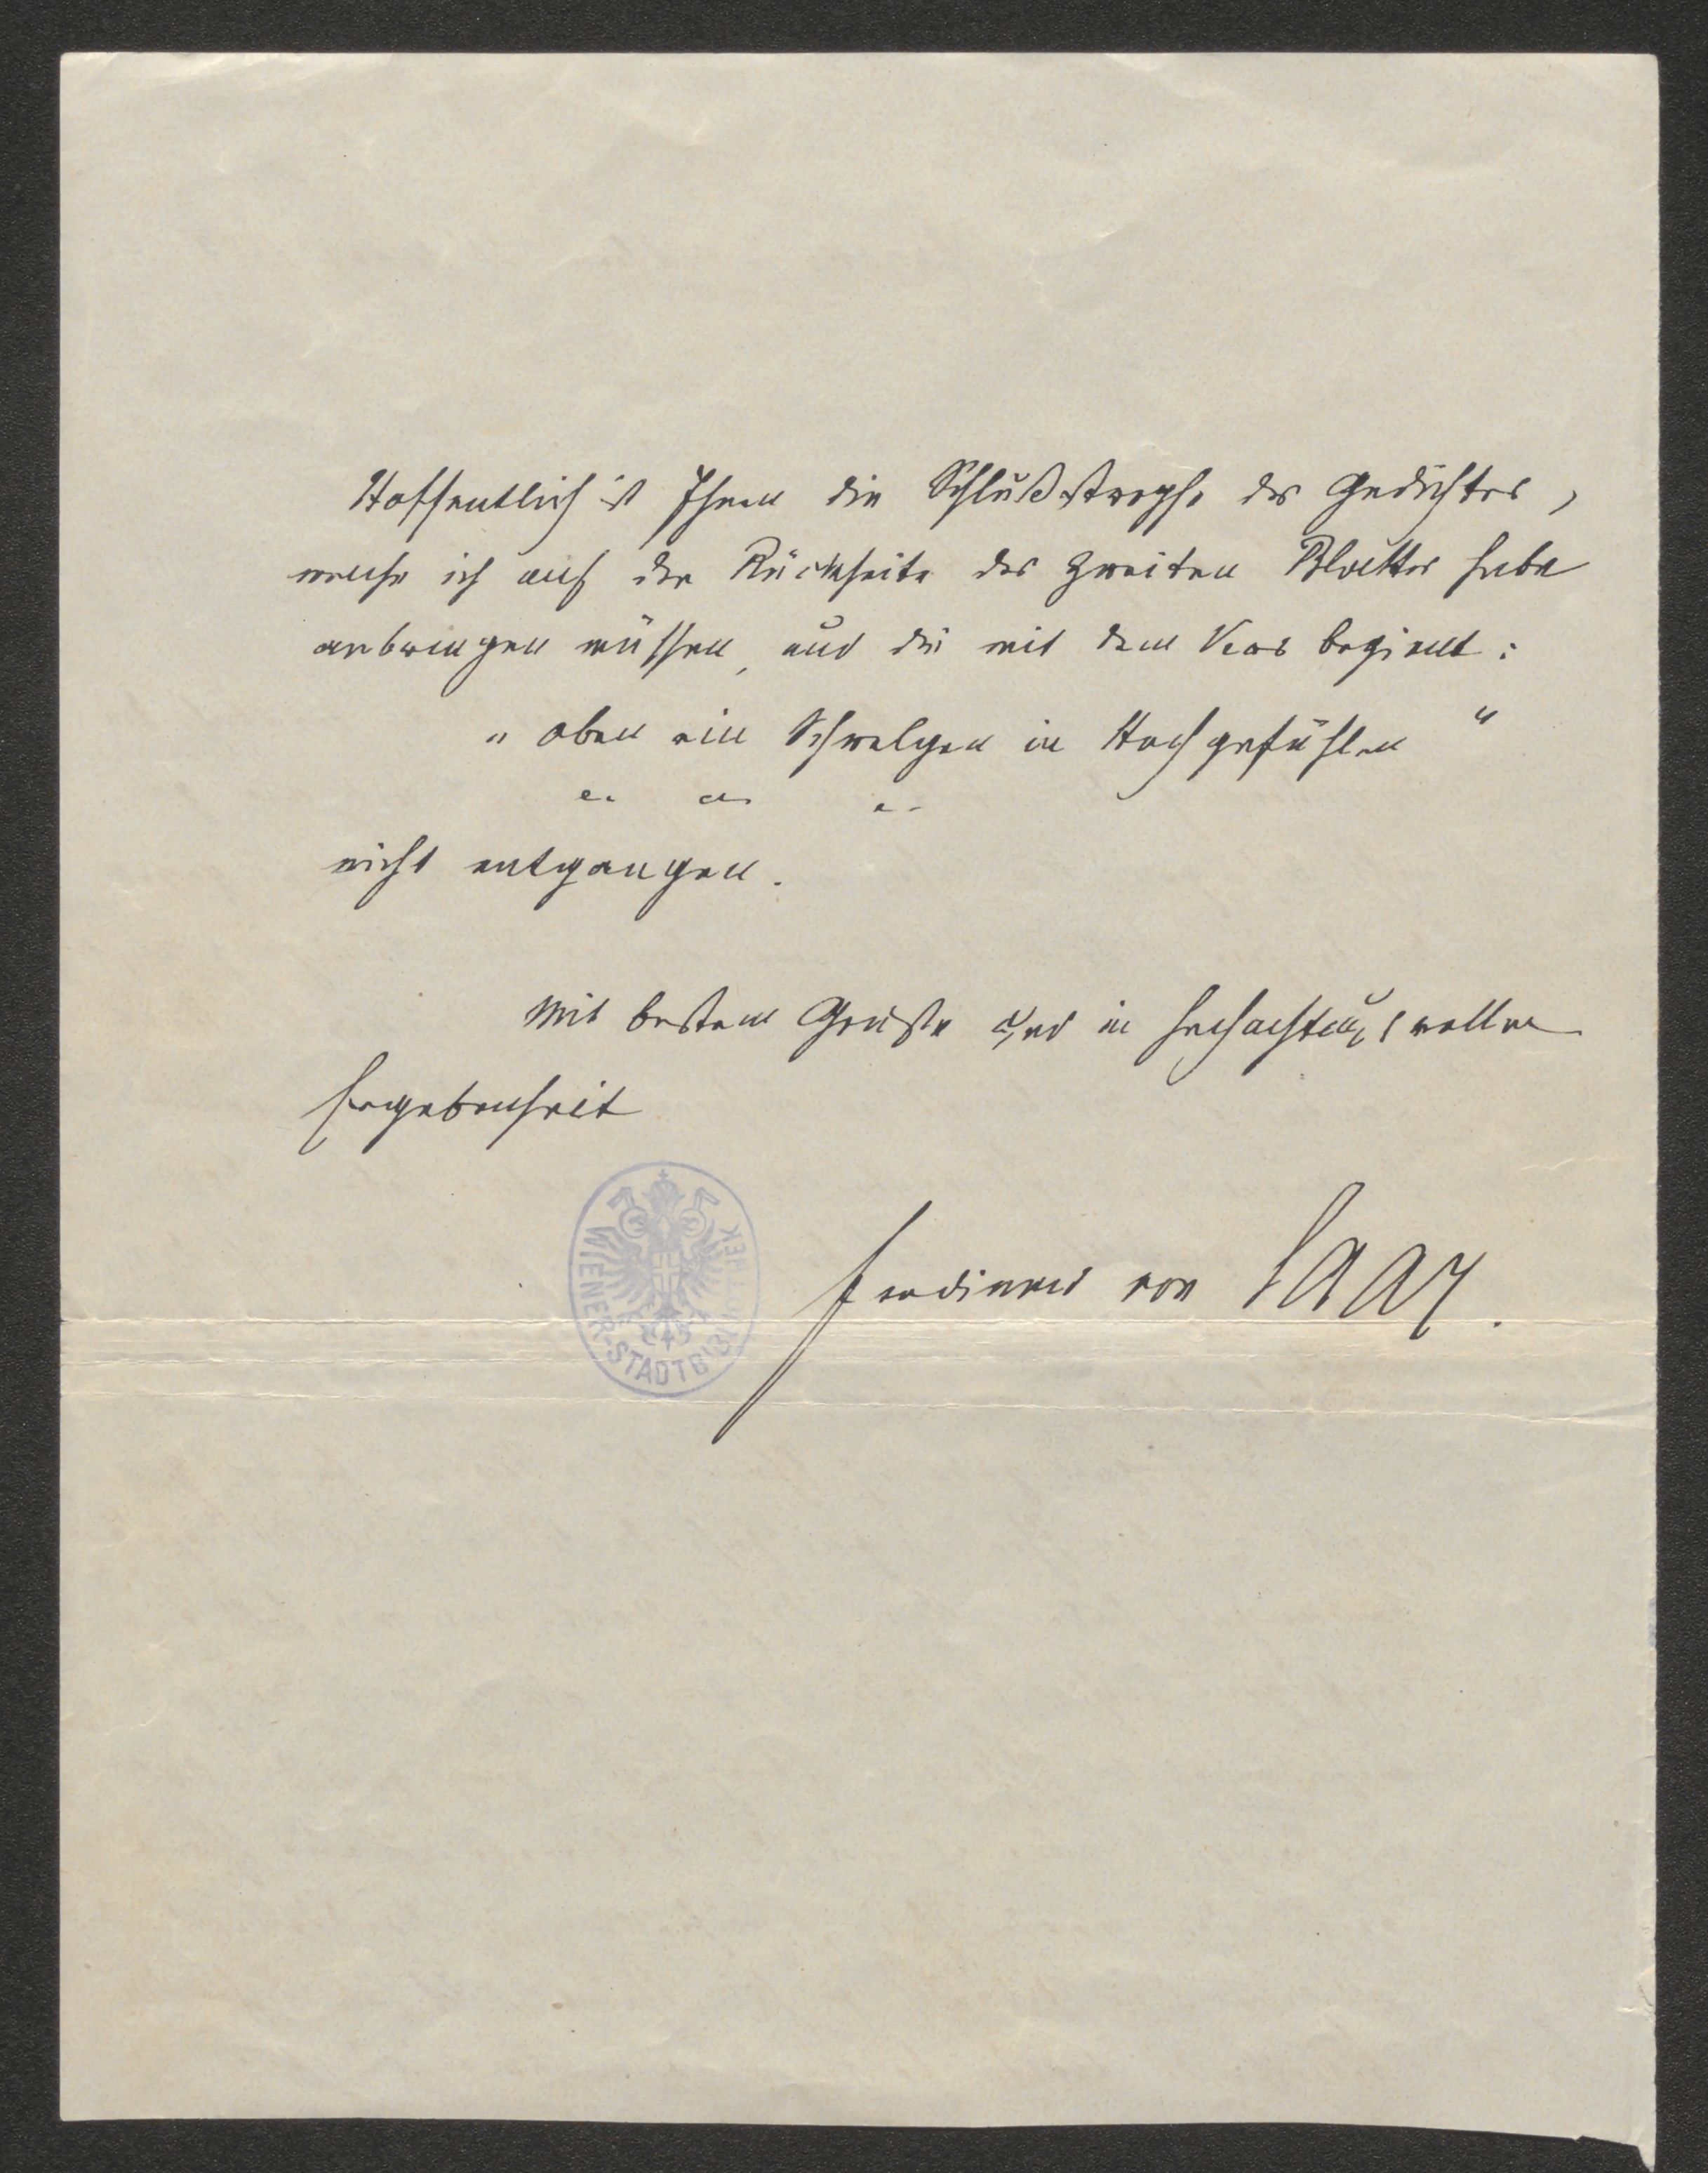 Hoffentlich ist Ihnen die Schlußstrophe des Gedichtes,
welche ich auf der Rückseite des zweiten Blattes habe
anbringen müssen, und die mit dem Vers beginnt:
„Oben ein Schwelgen in Hochgefühlen“
nicht entgangen.
Mit bestem Gruße und in hochachtungsvoller
Ergebenheit
Ferdinand von Saar.
WIENER-STADTBIBLIOTHEK